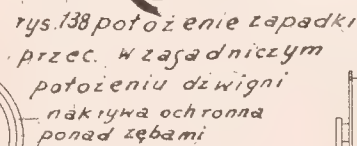 rys.138 położenie zapadki
przec. w zasadniczym
położeniu dźwigni
nakrywa ochronna
ponad zębami